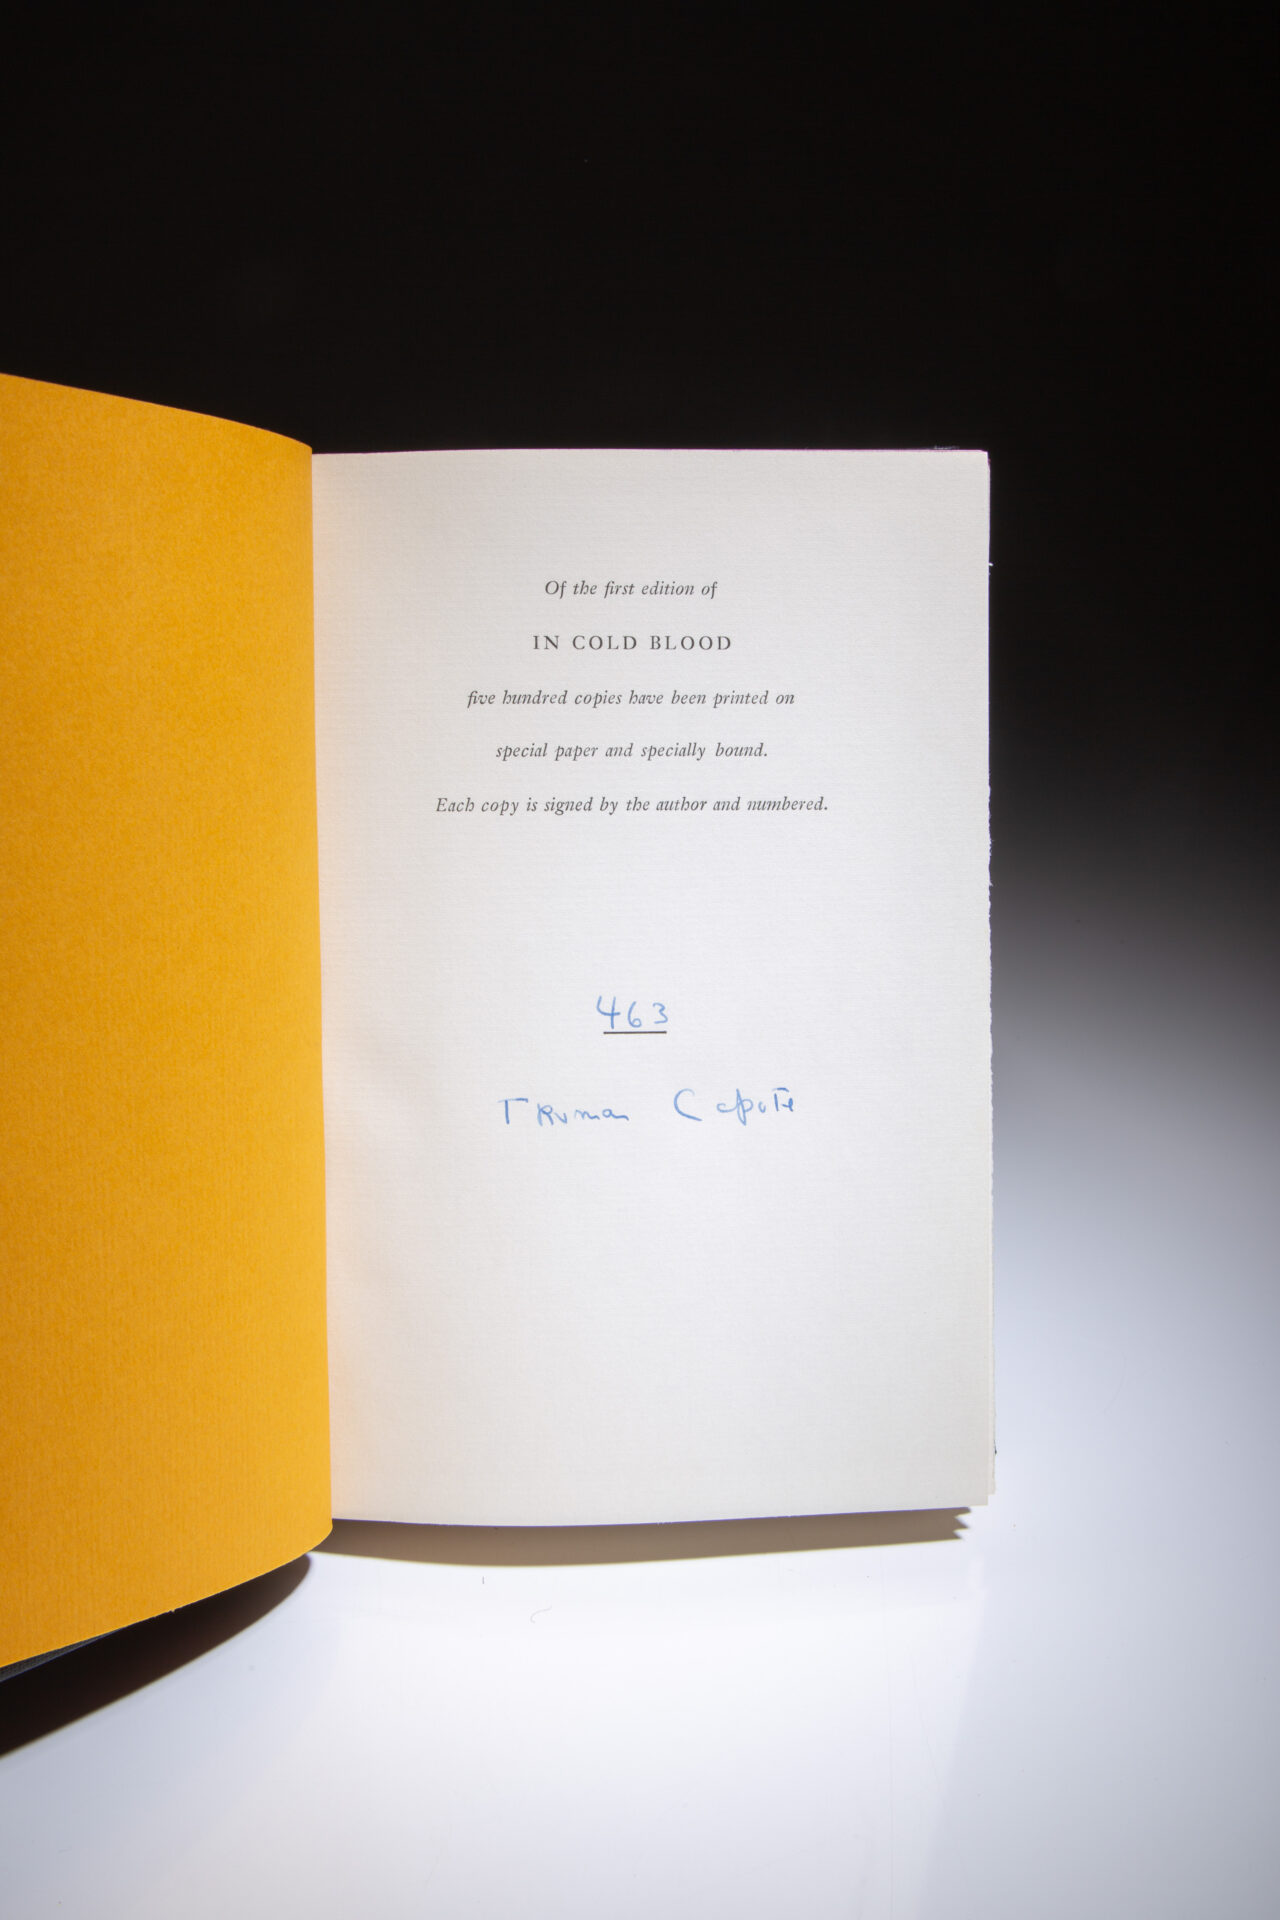 Of the first edition of
IN COLD BLOOD
five hundred copies have been printed on
special paper and specially bound.
Each copy is signed by the author and numbered.
463
Truman Capote